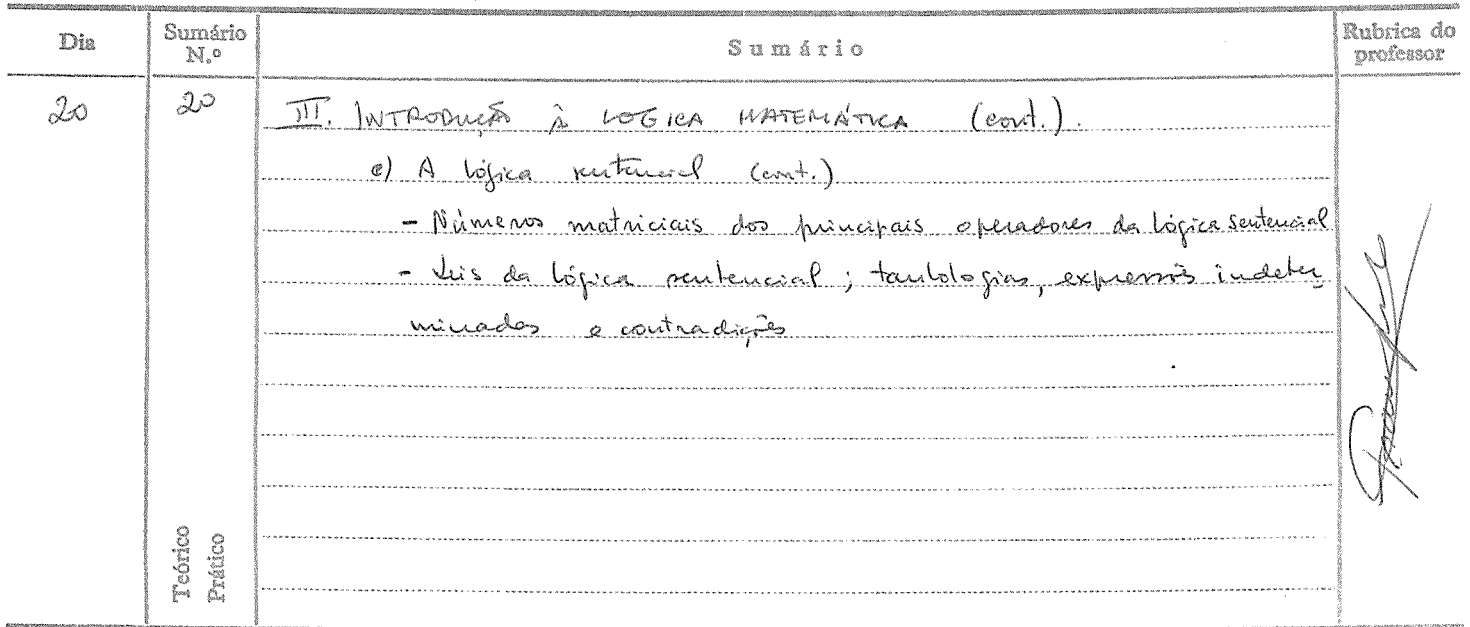 Dia Sumário N.º Sumário Rubrica do professor
20 20 III. INTRODUÇÃO À LOGICA MATEMÁTICA (cont.).
e) A lógica sentencial (cont.)
- Números matriciais dos principais operadores da lógica sentencial
- Leis da lógica sentencial; tautologias, expressões indeter
minadas e contradições
Teórico
Prático